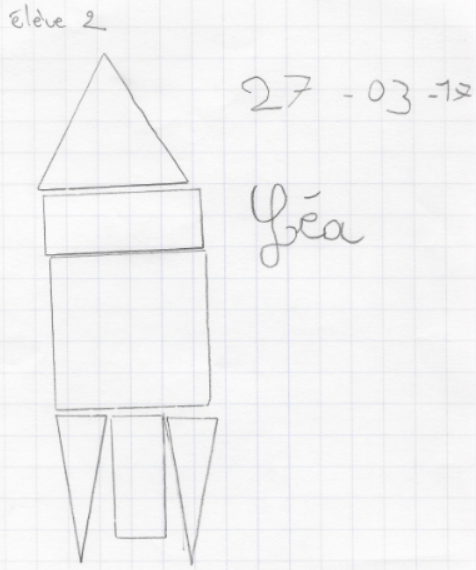 élève 2
27 - 03 - 17
Léa